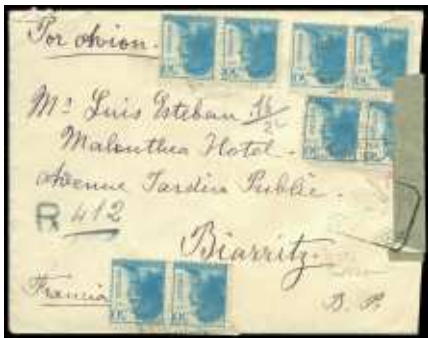 Por Avion.
Mr Luis Esteban
Malonthea Hotel.
Avenue Jardin Public.
R 412
Biarritz.
Francia
B. P.